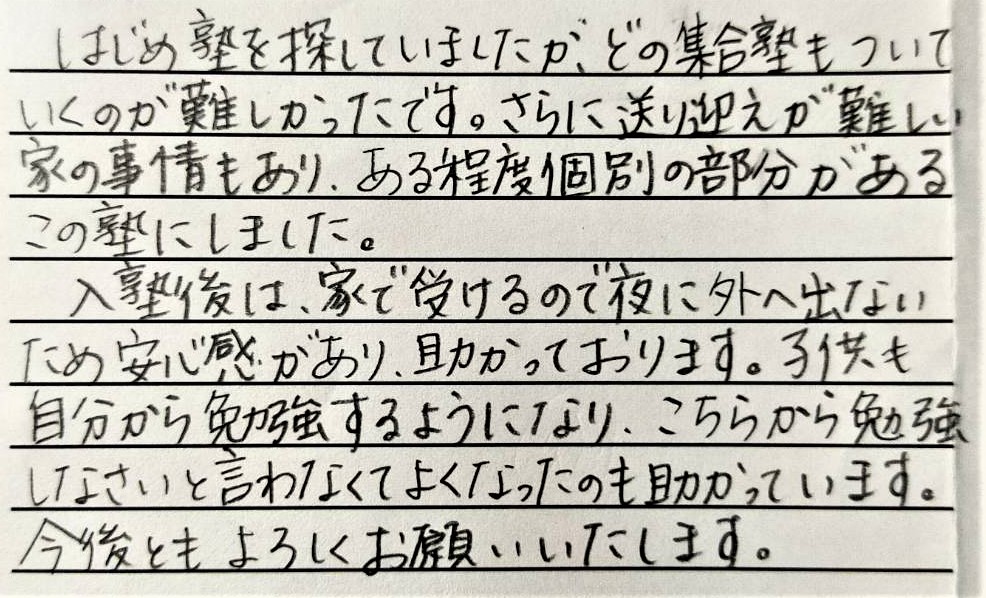 はじめ塾を探していましたが、どの集合塾もついて
いくのが難しかったです。さらに送り迎えが難しい
家の事情もあり、ある程度個別の部分がある
この塾にしました。
入塾後は、家で受けるので夜に外へ出ない
ため安心感があり、助かっております。子供も
自分から勉強するようになり、こちらから勉強
しなさいと言わなくてよくなったのも助かっています。
今後ともよろしくお願いいたします。